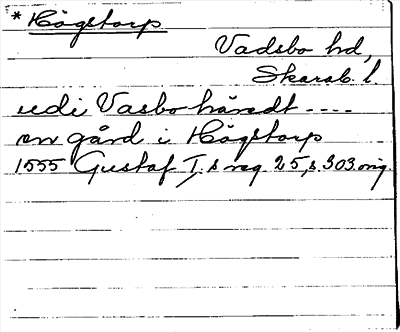 * Högstorp
Vadsbo hd,
Skarab. l.
udi Vasbo häredt ----
en gård i Högstorp
1555 Gustaf I.s reg. 25, s. 303. orig.